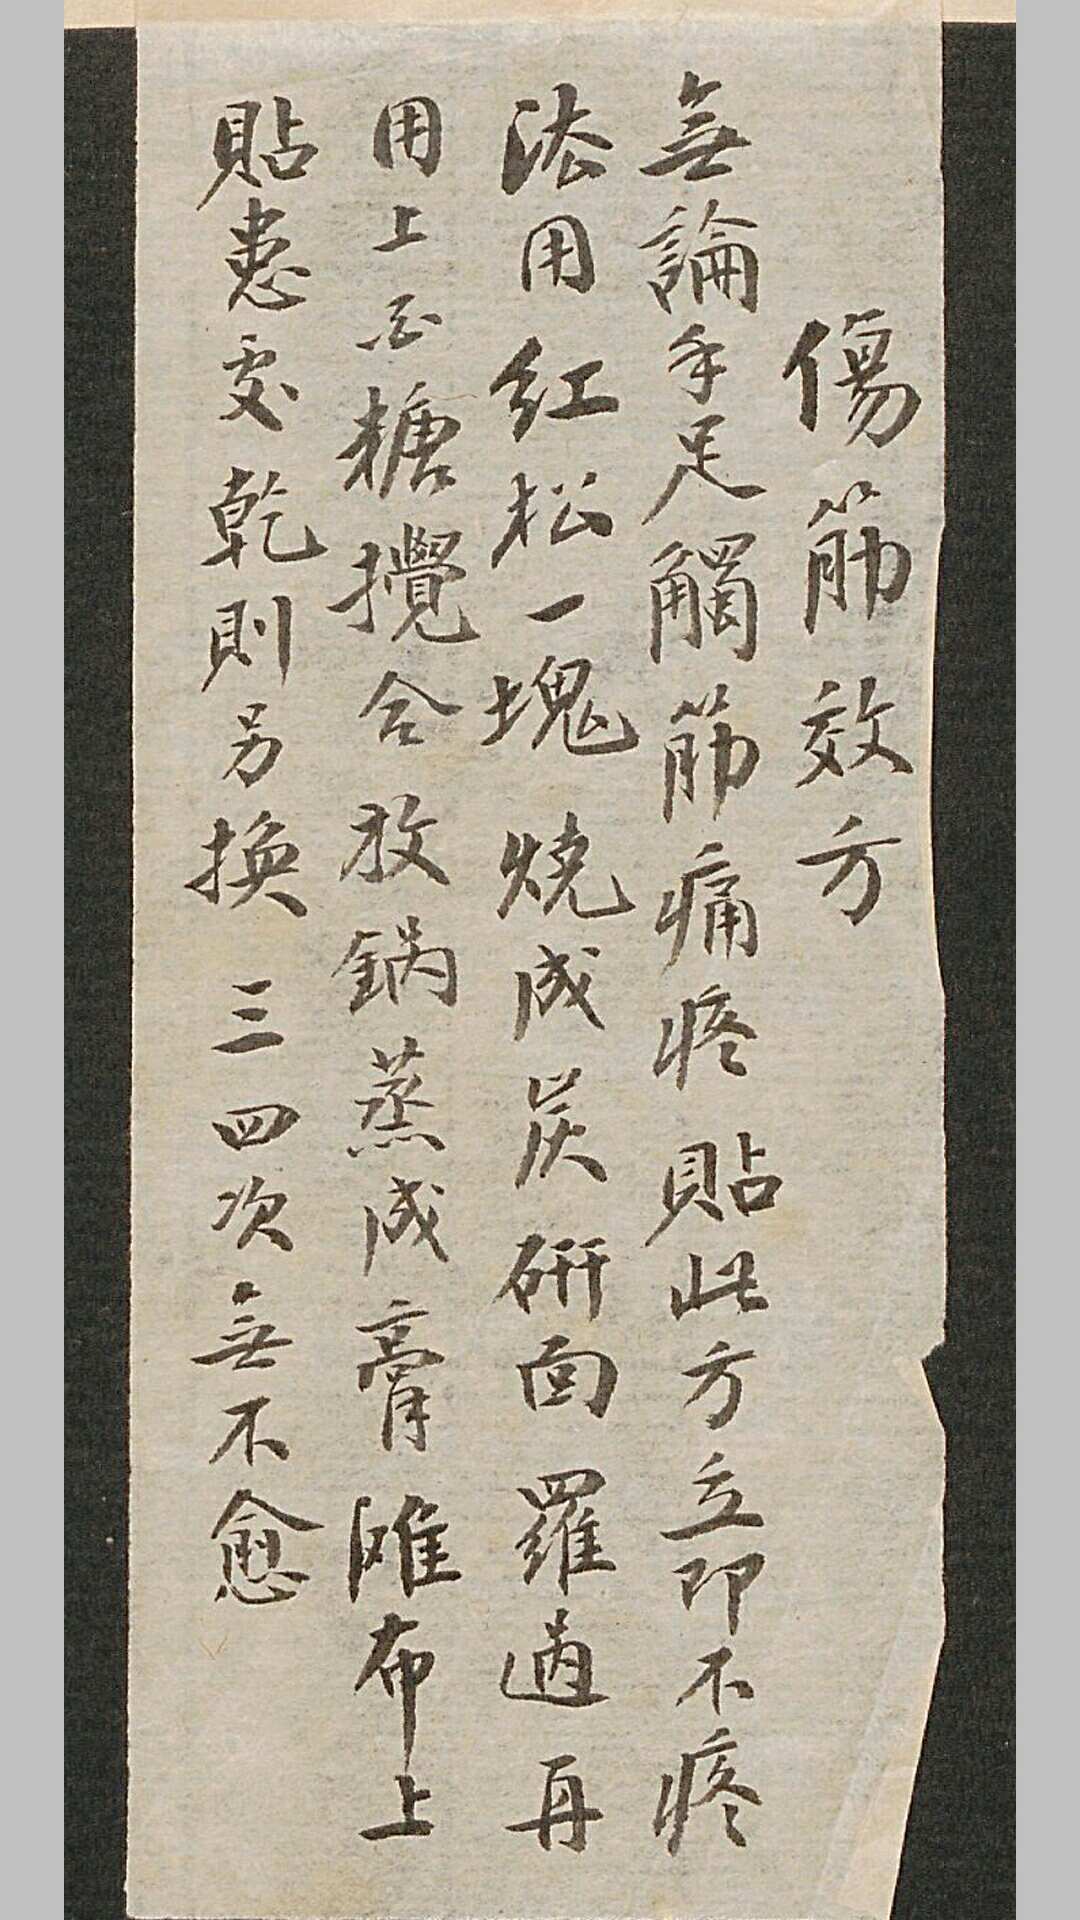 傷筋效方
無論手足觸筋痛疼貼此方立即不疼
法用紅松一塊燒成炭研面羅過再
用上白糖攪合放鍋蒸成膏滩布上
貼患处乾則另換三四次無不愈